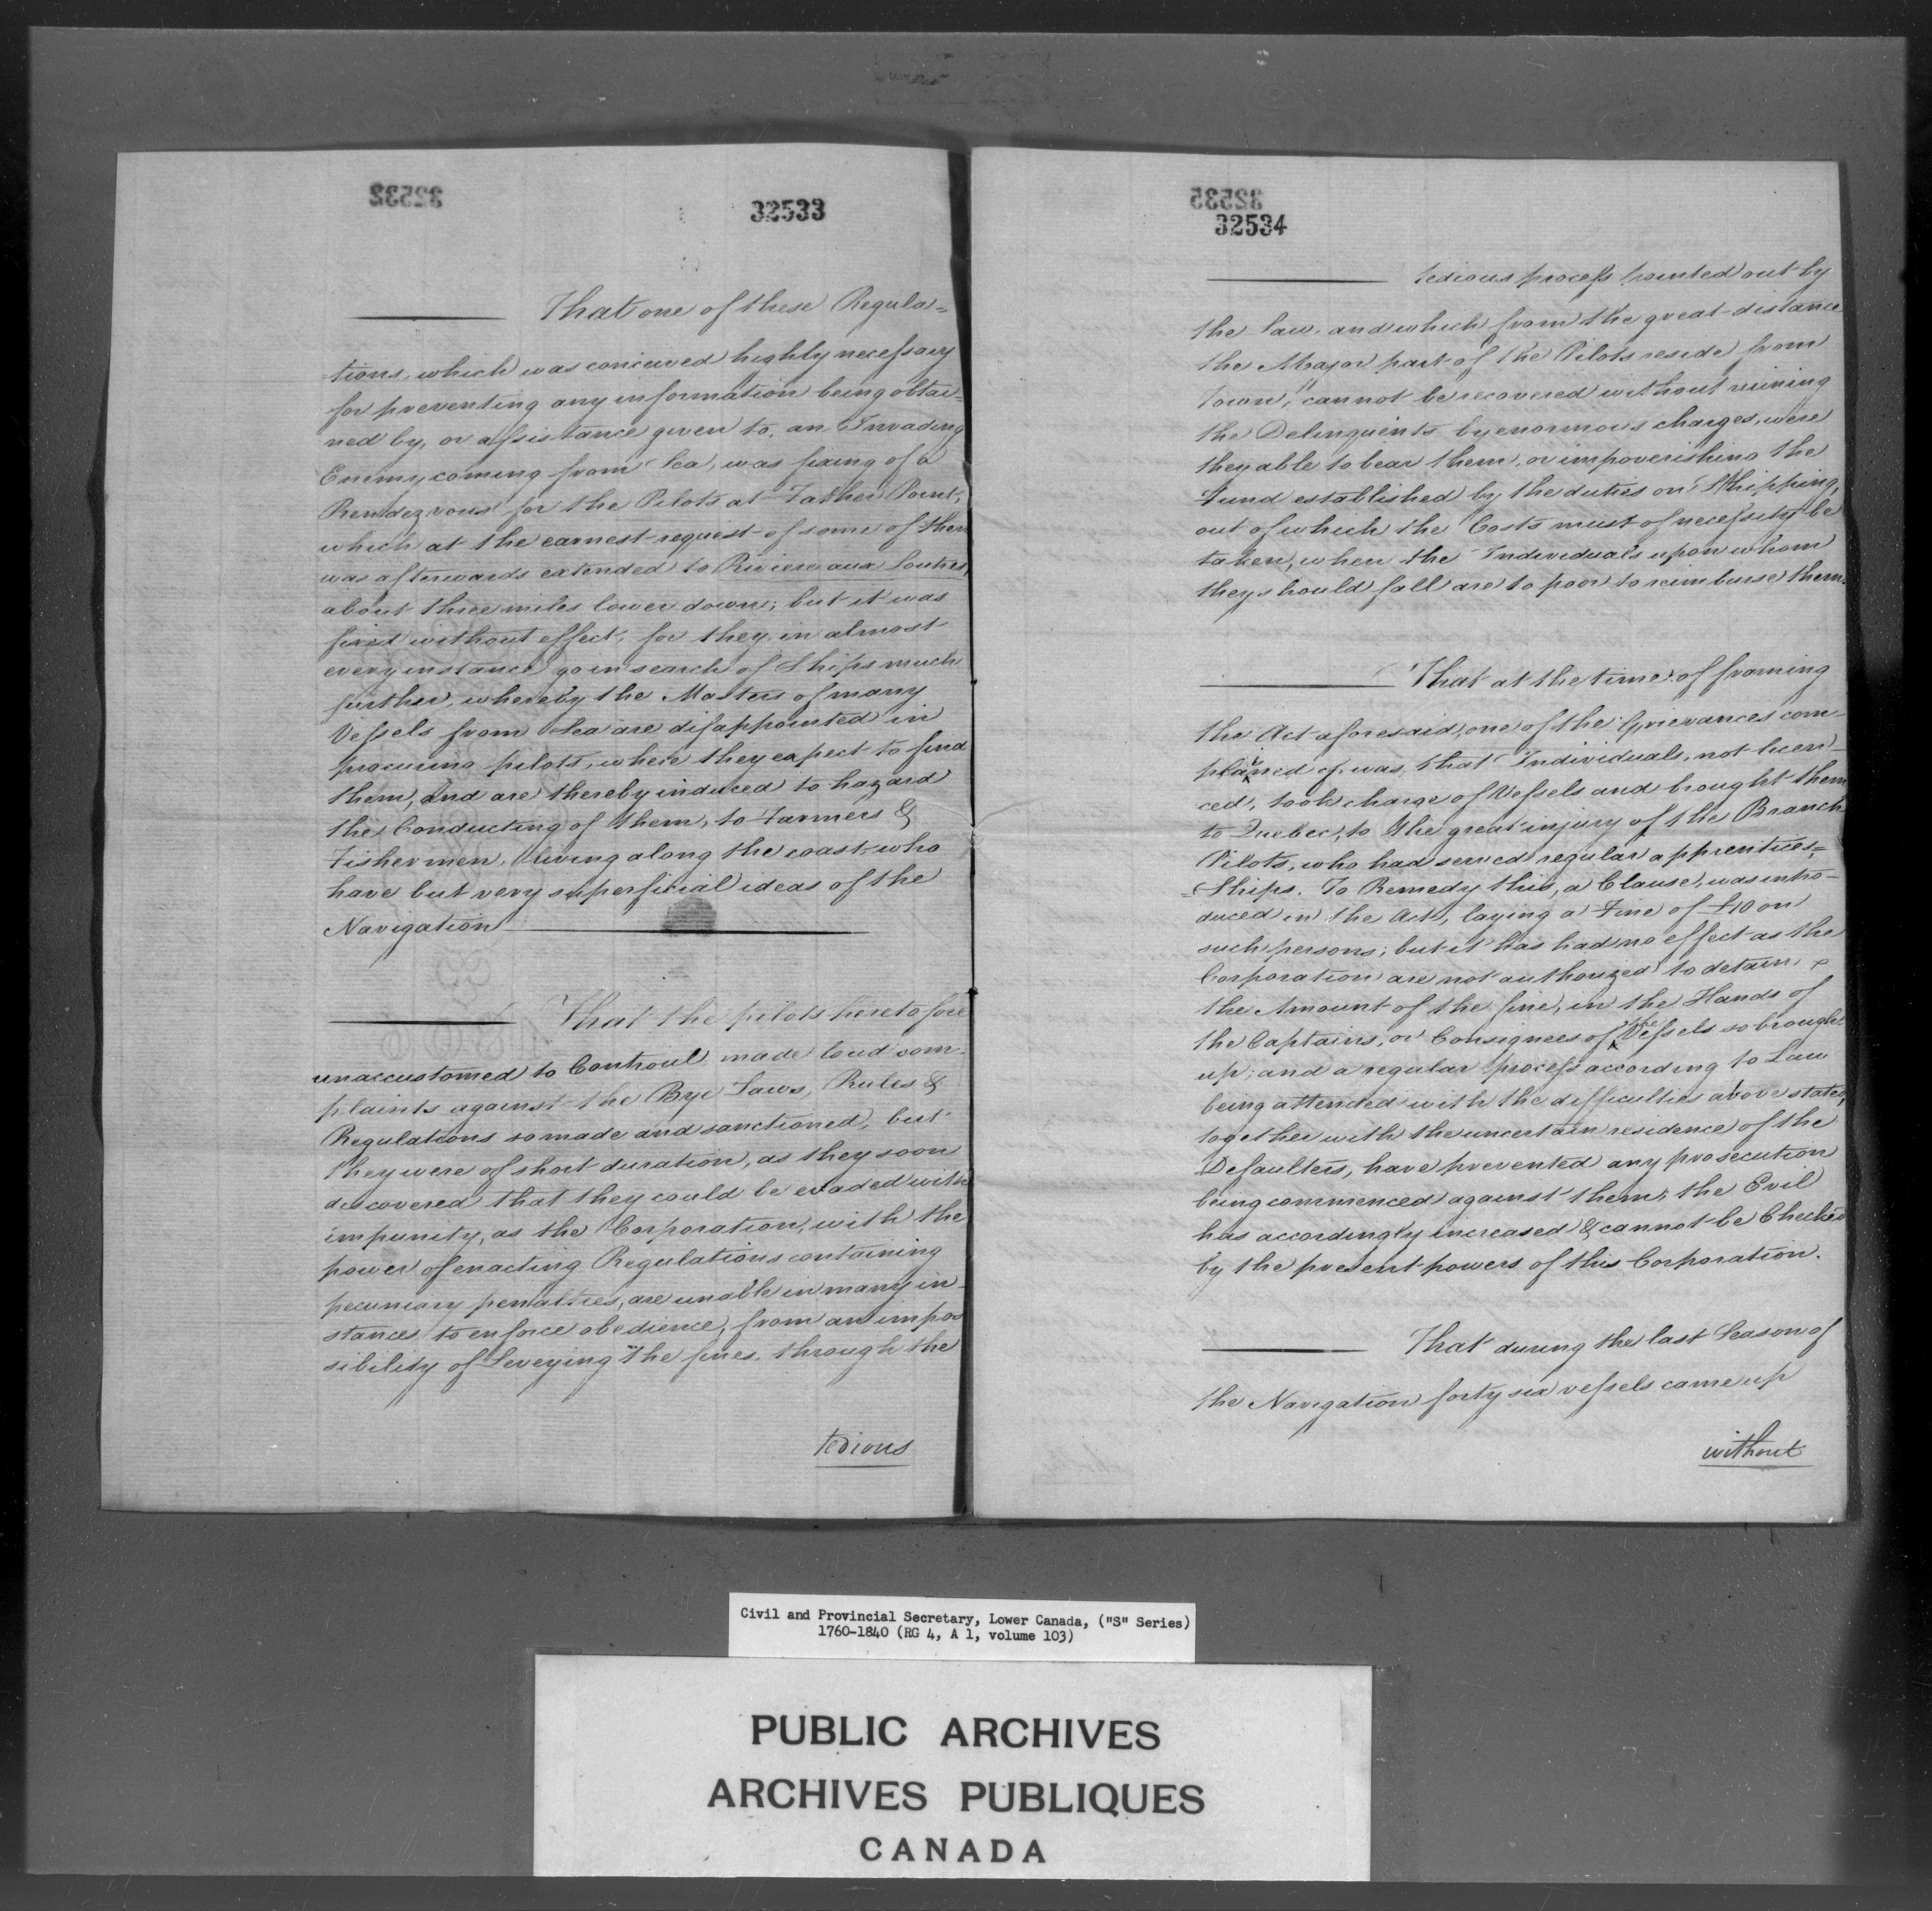 32532
32533
That one of these Regula=
tions, which was conceived highly necessary
for preventing any information being obtai=
ned by, or assistance given to, an Invading
Enemy coming from Sea, was fixing of a
Rendezvous for the Pilots at Father Point,
which at the earnest request of some of them
was afterwards extended to Riviere aux Loutres,
about three miles lower down; but it was
fixed without effect, for they in almost
every instance go in search of Ships much
further, whereby the Masters of many
Vessels from Sea are disappointed in
procuring pilots, where they expect to find
them, and are thereby induced to hazard
the Conducting of them, to Farmers &
Fishermen, living along the coast who
have but very superficial ideas of the
Navigation
That the pilots heretofore
unaccustomed to Controul made loud com-
plaints against the Bye Laws, Rules &
Regulations so made and sanctioned, but
they were of short duration, as they soon
discovered that they could be evaded with
impunity, as the Corporation, with the
power of enacting Regulations containing
pecuniary penalties, are unable in many in-
stances to enforce obedience, from an impos
sibility of Leveying the fines, through the
tedious
32535
32534
tedious process pointed out by
the law, and which from the great distance
the Major part of the Pilots reside from
Town, cannot be recovered without ruining
the Delinquents by enormous charges, were
they able to bear them, or impoverishing the
Fund established by the duties on Shipping,
out of which the Costs must of necessity be
taken, when the Individuals upon whom
they should fall are to poor to reimburse them.
That at the time of framing
the Act aforesaid, one of the Grievances com-
plained of, was, that Individuals, not licen-
ced, took charge of Vessels and brought them
to Quebec, to the great injury of the Branch
Pilots, who had served regular apprentices=
=Ships. To Remedy this, a Clause, was intro-
duced in the Act, laying a Fine of £10 on
such persons; but it has had no effect as the
Corporation are not authorized to detain
the Amount of the fine, in the Hands of
the Captains, or Consignees of the Vessels so brought
up; and a regular process according to Law
being attended with the difficulties above stated,
together with the uncertain residence of the
Defaulters, have prevented any prosecution
being commenced against them; the Evil
has accordingly increased & cannot be Checked
by the present powers of this Corporation.
That during the last Season of
the Navigation forty six vessels came up
without
Civil and Provincial Secretary, Lower Canada, ("S" Series)
1760-1840 (RG 4, A 1, volume 103)
PUBLIC ARCHIVES
ARCHIVES PUBLIQUES
CANADA